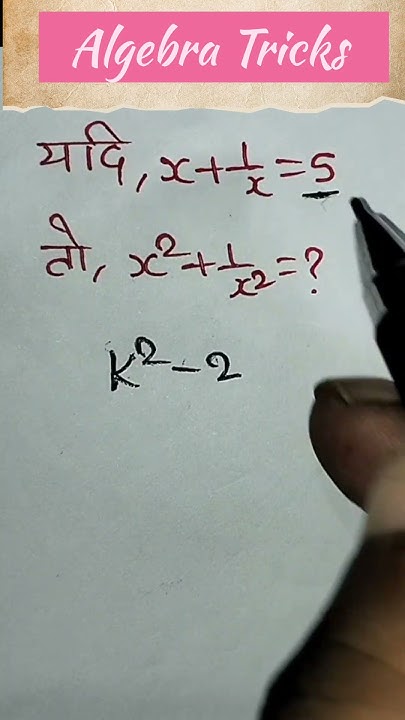 Algebra Tricks
यदि, x+1/x=5
तो, x²+1/x²=?
K²-2